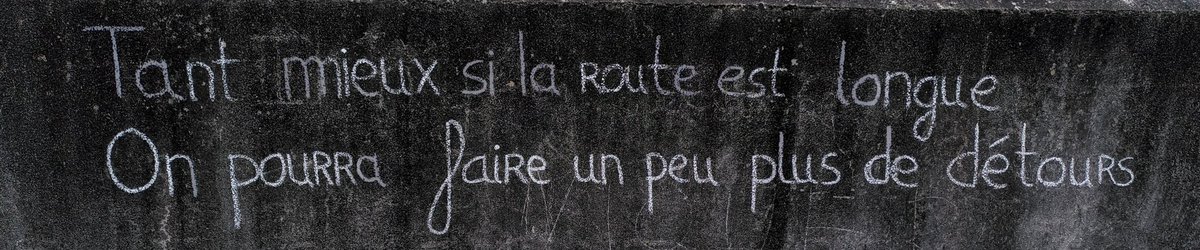 Tant mieux si la route est longue
On pourra faire un peu plus de détours